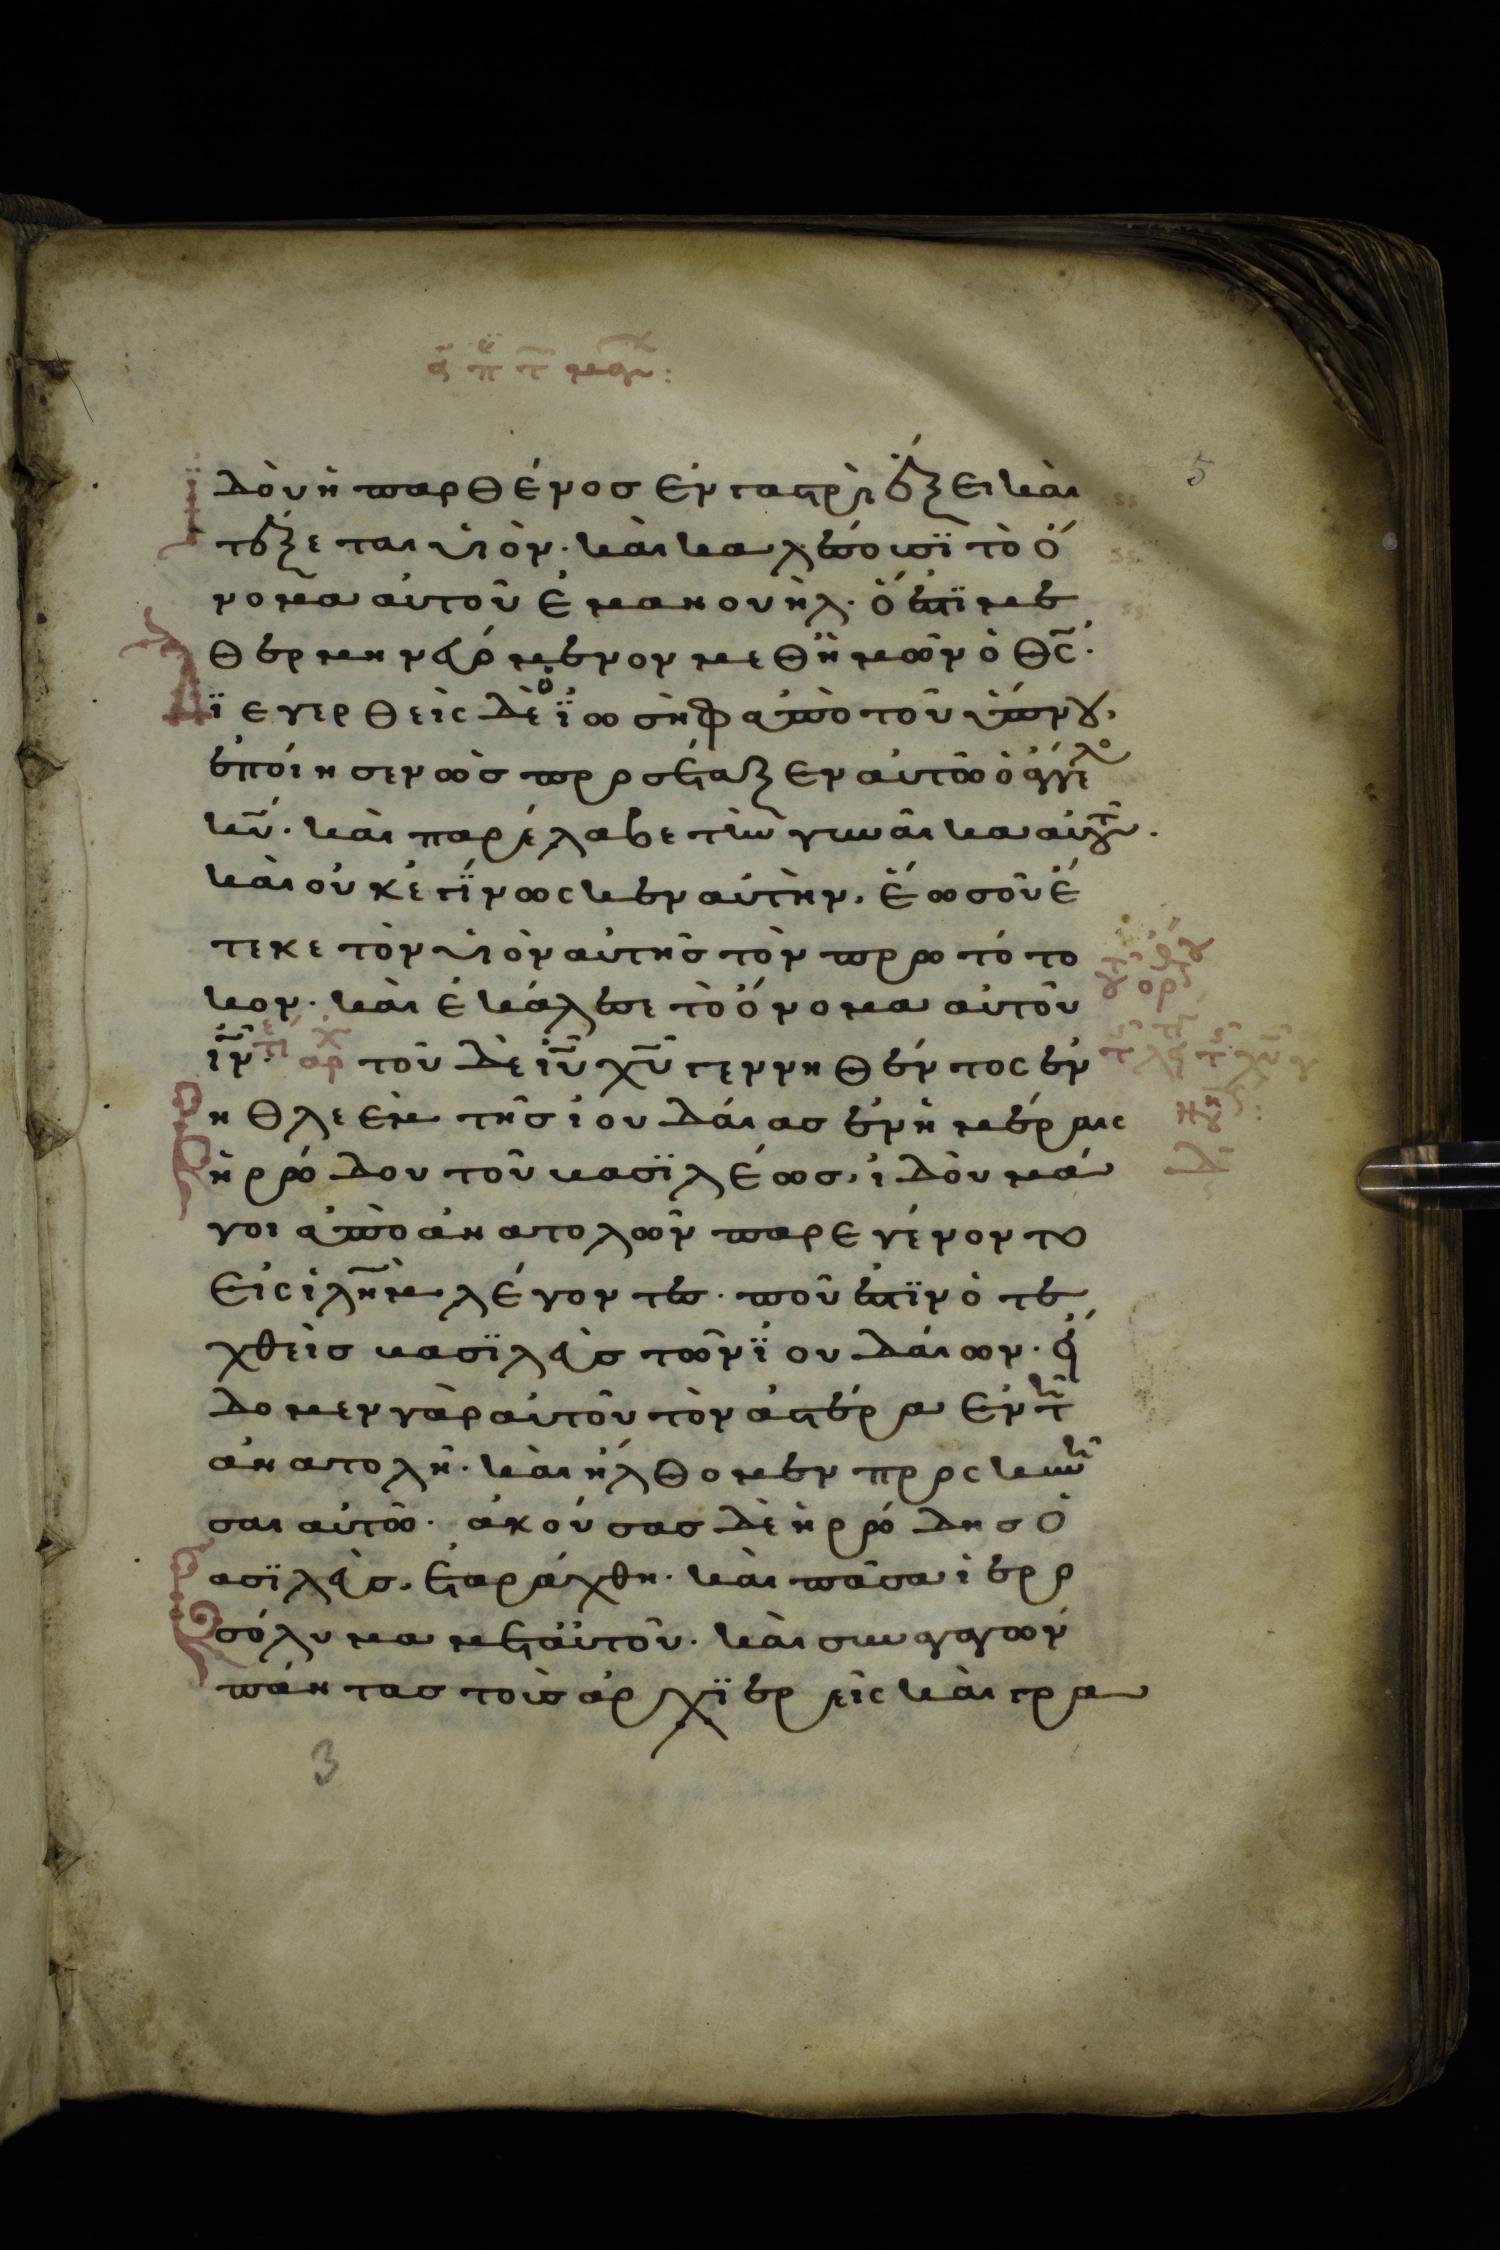 ἰδοὺ ἡ παρθένος ἐν γαστρὶ ἕξει καὶ
τέξεται υἱὸν· καὶ καλέσουσϊ τὸ ὄ
νομα αὐτοῦ ἐμανουὴλ· ὅ ἐστϊ με
θερμηνευόμενον μεθ ἡμῶν ὁ θς·
Δϊεγερθεὶς δὲ ὁ ϊωσὴφ ἀπὸ τοῦ ὕπνου,
ἐποίησεν ὡς προσέταξεν αὐτῶ ὁ ἄγγελο
κυ· καὶ παρέλαβε τὴν γυναῖκα αὐτοῦ.
καὶ οὐκ ἐγϊνωσκεν αὐτὴν, ἕως οὗ ἔ
τεκε τὸν υἱὸν αὐτῆς τὸν πρωτότο
κον· καὶ ἐκάλεσε τὸ ὄνομα αὐτοῦ
ιν· αρχ τοῦ δὲ ιυ χυ γεννηθέντος ἐν
βηθλεὲμ τῆς ἰουδαίας ἐν ἡμέραις
ἡρώδου τοῦ βασϊλέως, ἰδοὺ μά
γοι ἀπὸ ἀνατολῶν παρεγένοντο
εἰς ἱλημ λέγοντες· ποῦ ἐστϊν ὁ τε
χθεὶς βασϊλεὺς τῶν ϊουδαίων· εἴ
δομεν γὰρ αὐτοῦ τὸν ἀστέρα ἐν τῆ
ἀνατολῆ· καὶ ἤλθομεν προσκυνῆ
σαι αὐτῶ· ἀκούσας δὲ ἡρώδης ὁ
βασϊλεὺς, ἐταράχθη· καὶ πᾶσα ἱερο
σόλυμα μετ αὐτοῦ· καὶ συναγαγὼν
πάντας τοὺς ἀρχϊερεῖς καὶ γρα
5
3